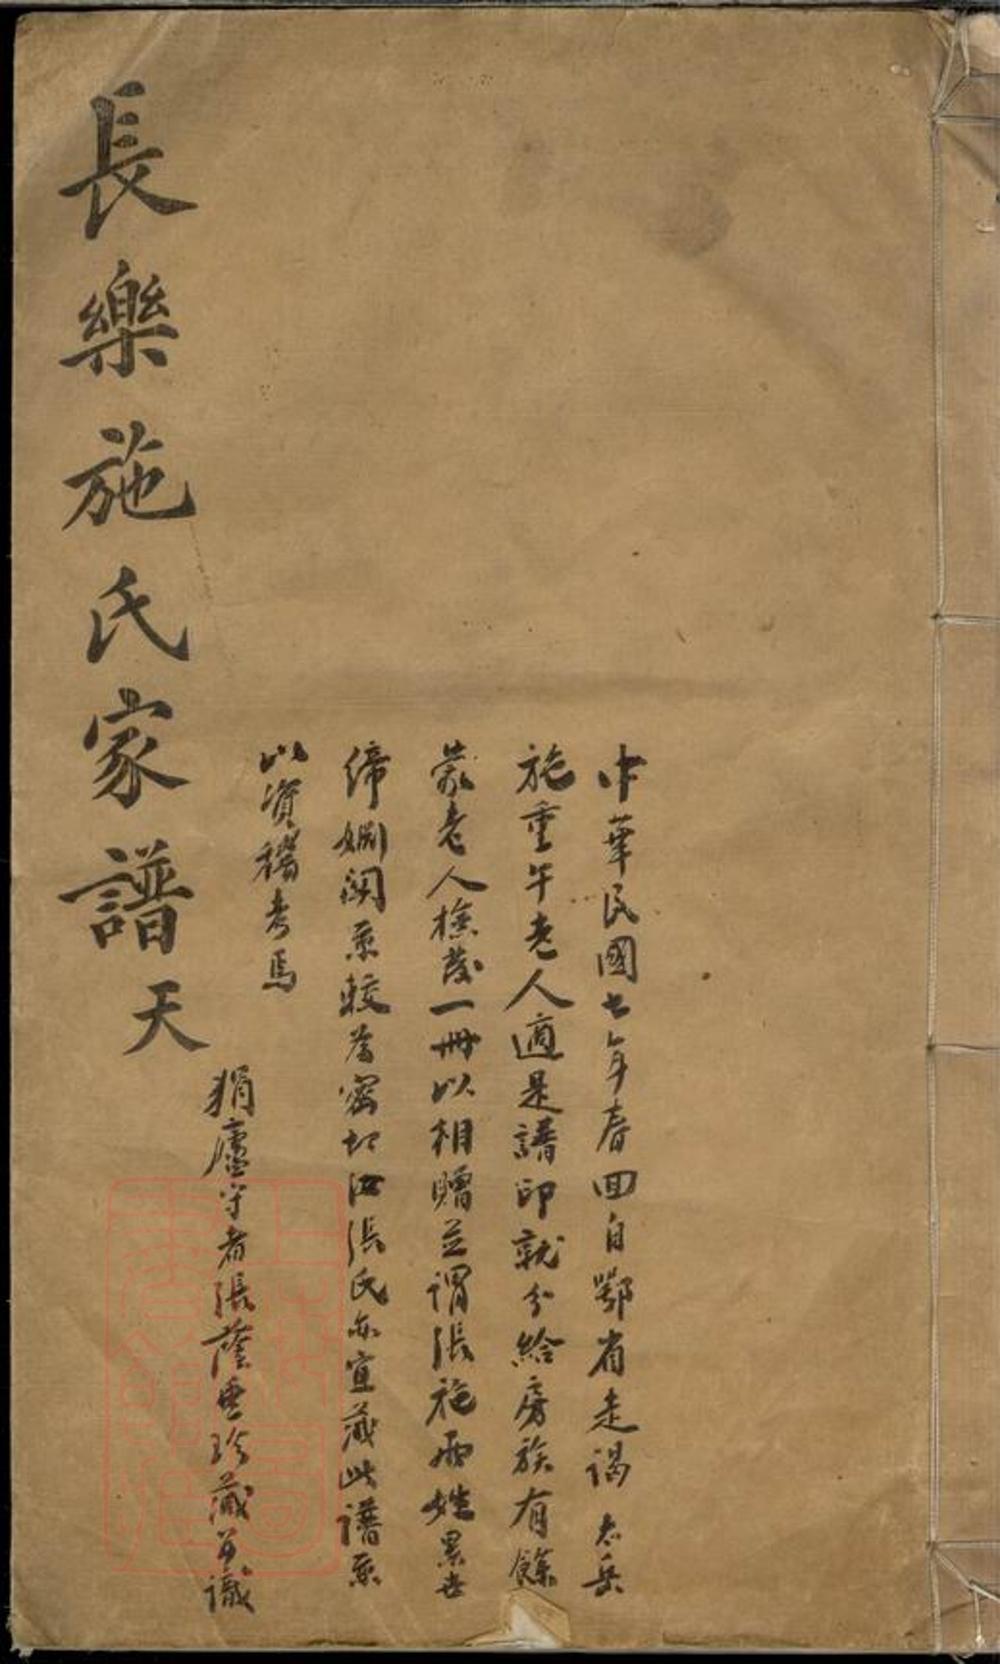 長樂施氏家譜 天
中華民國七年春回自鄂省走謁 太岳
施重午老人適是譜印就分給房族有餘
蒙老人撿發一冊以相贈並謂張施兩姓累世
締姻関系較為密切汝張氏亦宜藏此譜系
以資稽考焉
狷廬守者張蔭 珍藏並識